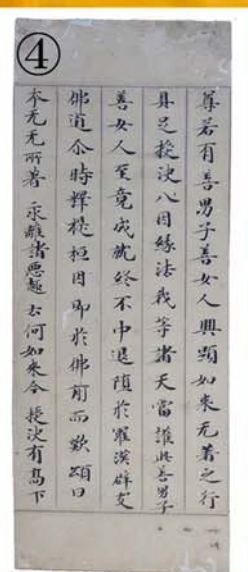 ④
尊若有善男子善女人興顯如来无著之行
具足授決八因緣法我等諸天當護此善男子
善女人至竟成就終不中退墮於羅漢辟支
佛道尒時釋提桓因即於佛前而歎頌曰
本无无所著 永離諸惡趣 云何如来今 授決有高下